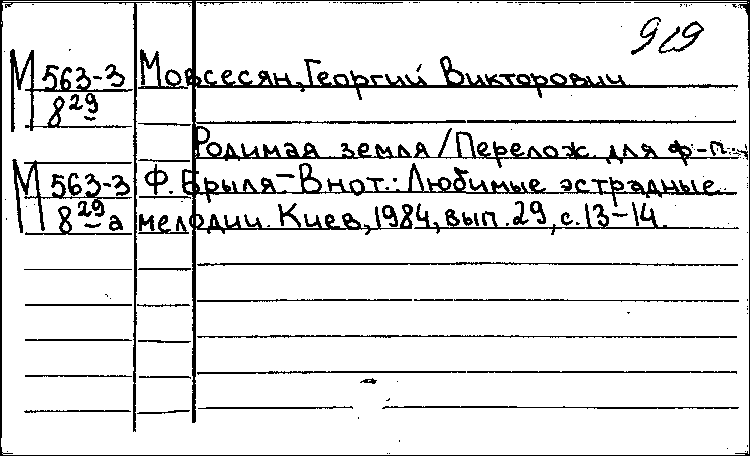 919
М 563-3 Мовсесян, Георгий Викторович
8 29
Родимая земля / Перелож. для ф-п.
М 563-3 Ф. Брыля. – В нот.: Любимые эстрадные
8 29 а мелодии. Киев, 1984, вып. 29, с. 13-14.